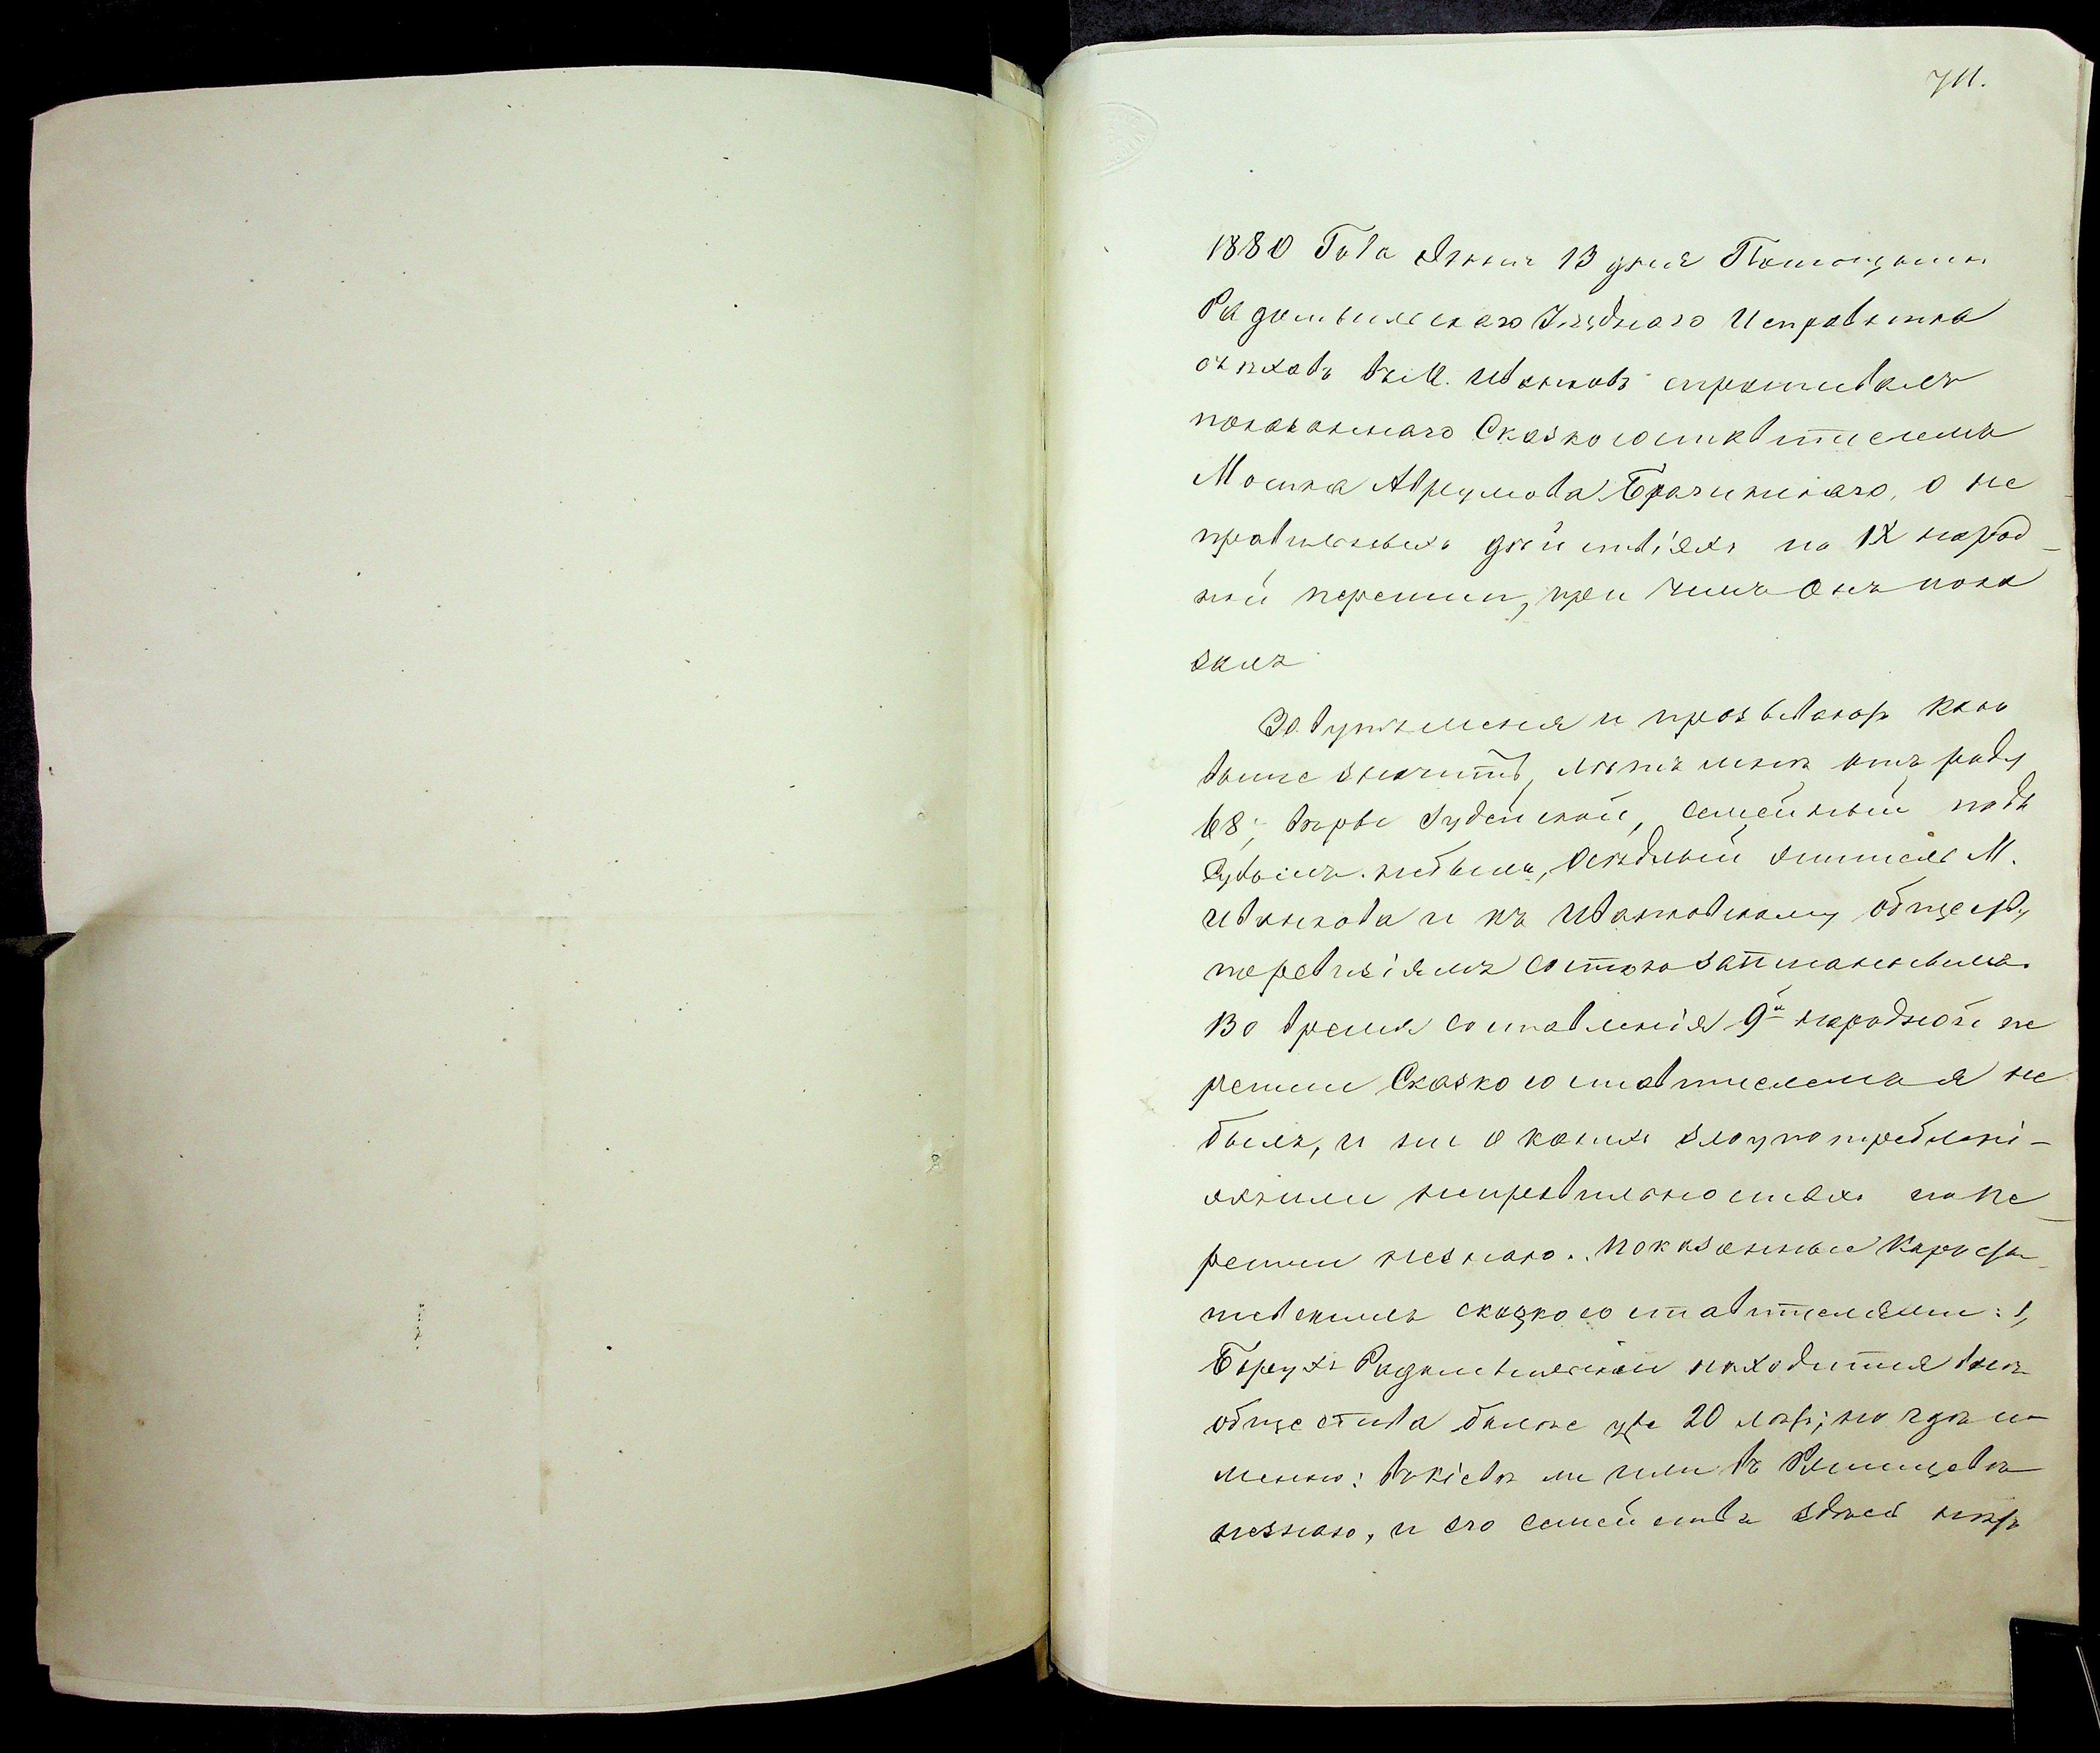 711.
1880 Года Января 13 дня Помощникъ
Радомысльскаго Уѣзднаго Исправника
въ М. Иванковъ спрашивалъ
показаннаго Сказкосоставителемъ
Мошка Аврумова Брагинскаго, о не
правильныхъ дѣйствіяхъ по IX народ_
ной переписи, при чемъ Онъ пока
залъ
Зовутъ меня и прозываютъ какъ
выше значитъ, лѣтъ мнѣ отъ роду
68, вѣры Іудейской, семейный подъ
Судомъ небылъ, Осѣдлый житель М.
Иванкова и къ Иванковскому обществу
поревизіямъ состою записаннымъ.
Во время составленія 9й народной пе
реписи Сказкосоставителемъ я не
былъ, и ни о какихъ злоупотреблені-
яхъ или неправильностяхъ попе_
реписи незнаю. Показанные
сказкосоставителями: 1,
Борухъ Радомысльскій находится внѣ
общества болѣе уже 20 лѣтъ; но гдѣ и
менно: въ Кіевѣ ли или въ
незнаю, и его семейства здѣсь нѣтъ